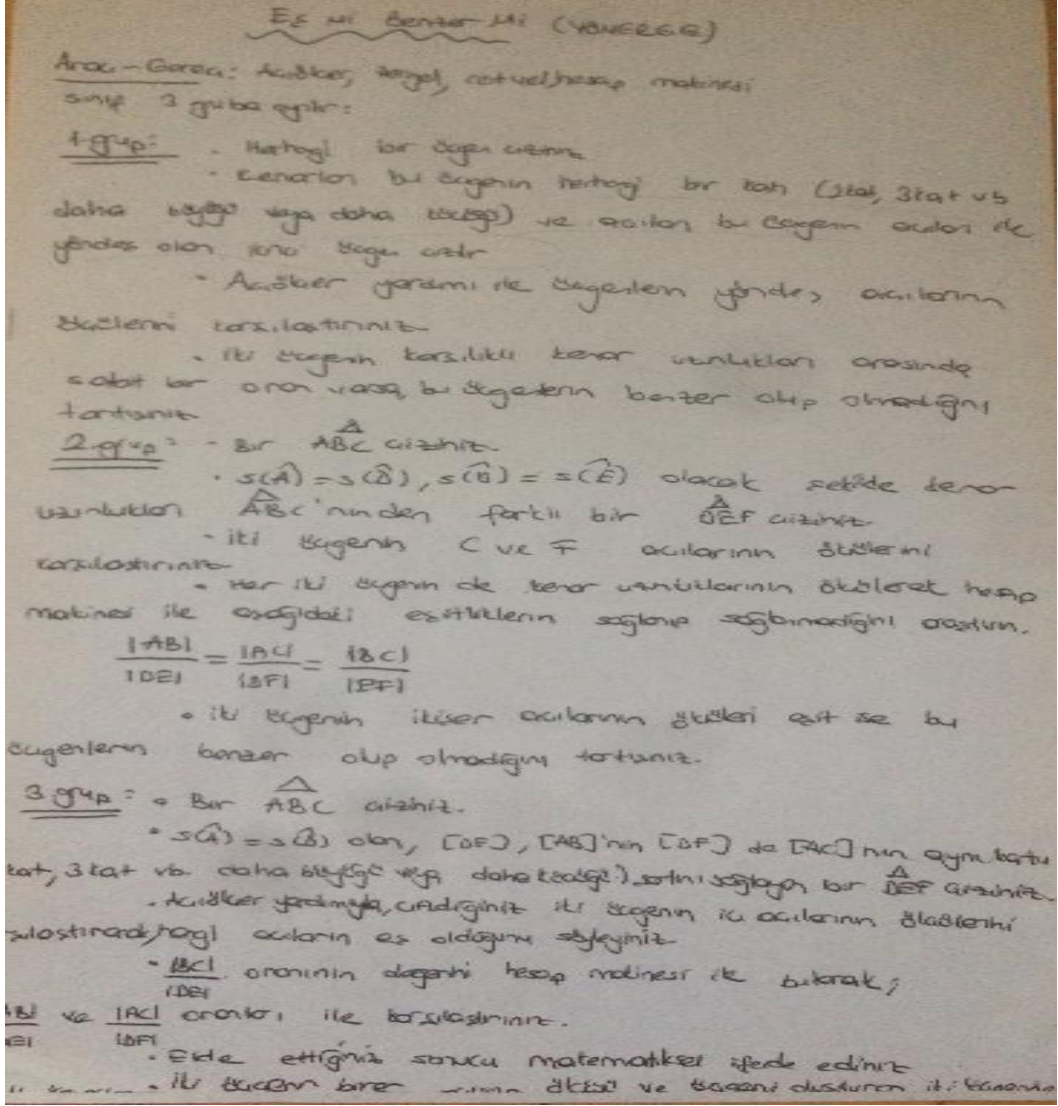 Eş Mi Benzer Mi (YÖNERGE)
Araç-Gereç: Açıölçer, cetvel, hesap makinesi
sınıf 3 guba ayrılır:
1 grup: . Herhangi bir üçgen çiziniz
. Kenarları bu üçgenin herhangi bir katı (2kat, 3kat vb
daha büyüğü veya daha küçüğü) ve açıları bu üçgenin açıları ile
yöndeş olan üçgen çizilir
. Açıölçer yardımı ile üçgenlerin yöndeş açılarının
ölçülerini karşılaştırınız
. İki üçgenin karşılıklı kenar uzunlukları arasında
sabit bir oran varsa, bu üçgenlerin benzer olup olmadığını
tartışınız
2 grup: - Bir ABC çiziniz.
. s(Â) = s(D̂), s(B̂) = s(Ê) olacak şekilde kenar
uzunlukları ABC'ninden farklı bir DEF çiziniz.
- iki üçgenin C ve F açılarının ölçülerini
karşılaştırınız
. Her iki üçgenin de kenar uzunluklarının ölçülerek hesap
makinesi ile aşağıdaki eşitliklerin sağlanıp sağlanmadığını araştırın.
|AB|/|DE| = |AC|/|DF| = |BC|/|EF|
. iki üçgenin ikişer açılarının ölçüleri eşit ise bu
üçgenlerin benzer olup olmadığını tartışınız.
3 grup: . Bir ABC çiziniz.
. s(Â) = s(D̂) olan, [DE], [AB]'nin [DF] de [AC] nin aynı
kat, 3 kat vb. daha büyüğü veya daha küçüğü) şartını sağlayan bir DEF çiziniz.
. Açıölçer yardımıyla, çizdiğiniz iki üçgenin iç açılarının ölçülerini
hangi açıların eş olduğunu söyleyiniz
. |BC|/|DE| oranının değerini hesap makinesi ile bularak;
ve |AC|/|DF| oranları ile karşılaştırınız.
. Elde ettiğiniz sonucu matematiksel ifade ediniz
. iki üçgenin birer ölçüsü ve üçgeni oluşturan iki